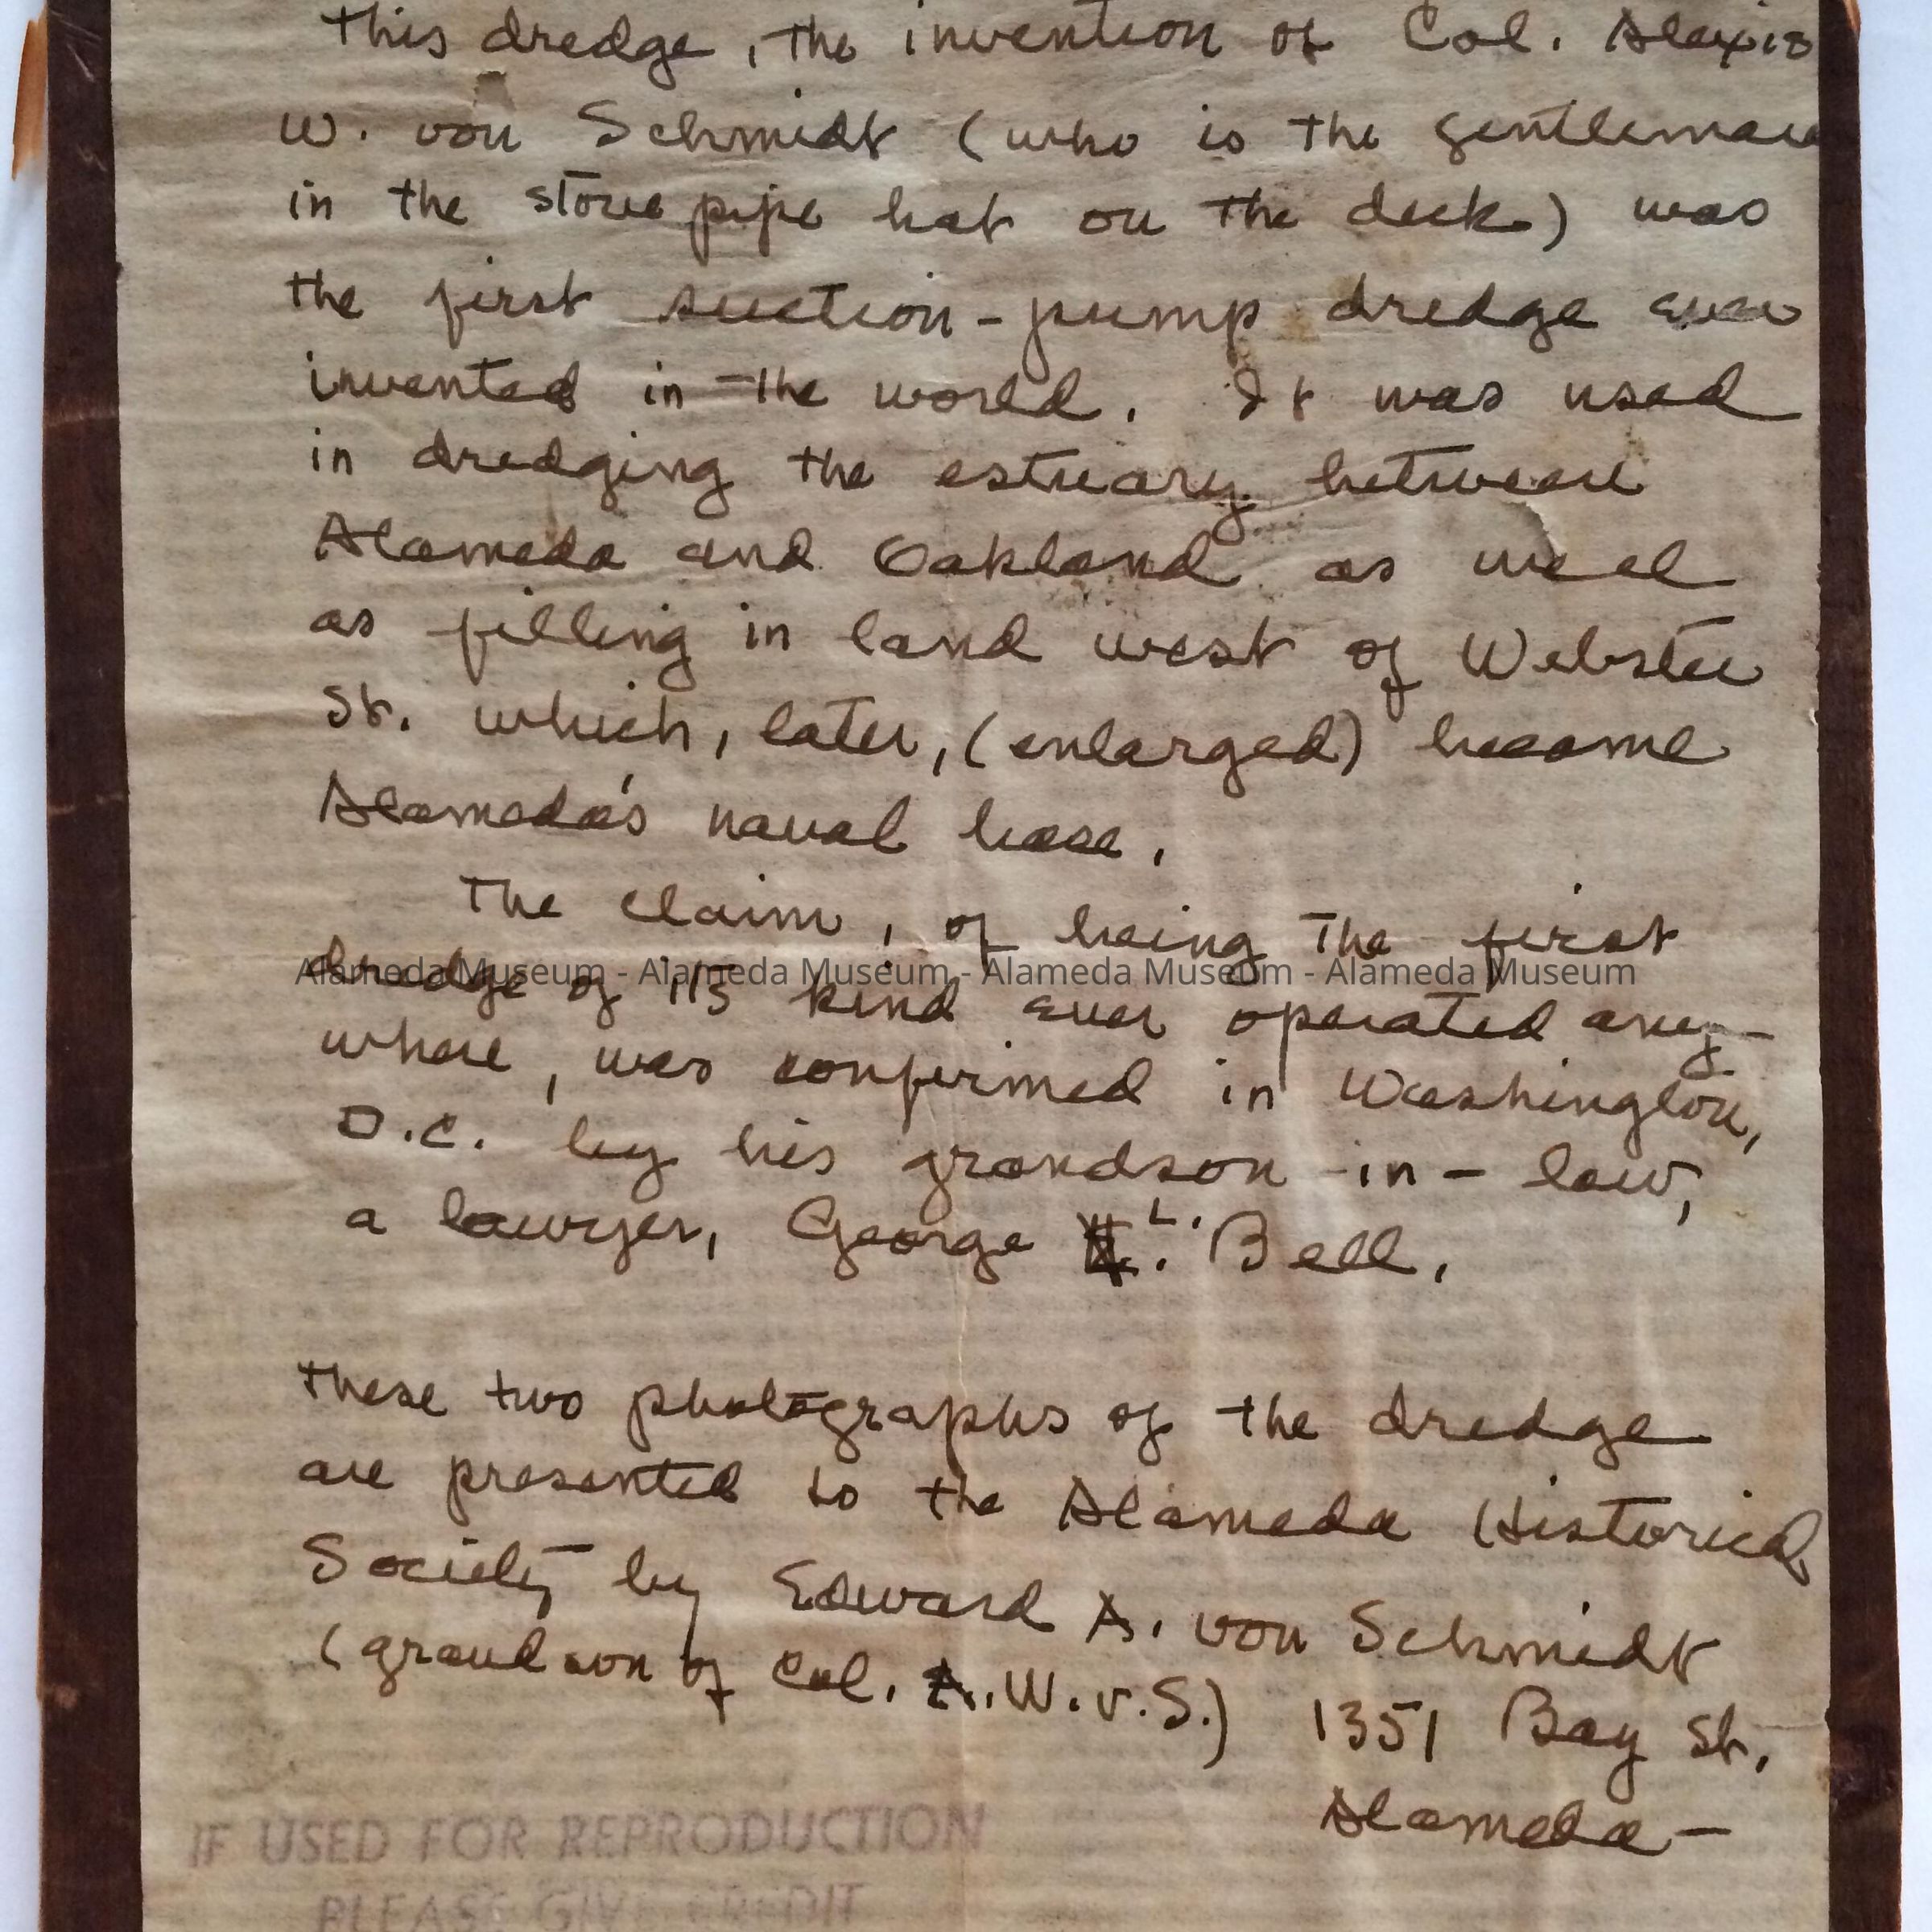 This dredge, the invention of Col. Alexis
W. von Schmidt (who is the gentleman
in the stove pipe hat on the deck) was
the first suction-pump dredge ever
invented in the world. It was used
in dredging the estuary between
Alameda and Oakland as well
as filling in land west of Webster
St. which, later, (enlarged) became
Alameda's naval base.
The claim, of being the first
dredge of its kind ever operated any-
Alameda Museum - Alameda Museum - Alameda Museum - Alameda Museum
where, was confirmed in Washington,
D.C. by his grandson-in-law,
a lawyer, George L. Bell.
These two photographs of the dredge
are presented to the Alameda Historical
Society by Edward A. von Schmidt
(grandson of Col. A.W.v.S.) 1351 Bay St.
Alameda-
IF USED FOR REPRODUCTION
PLEASE GIVE CREDIT